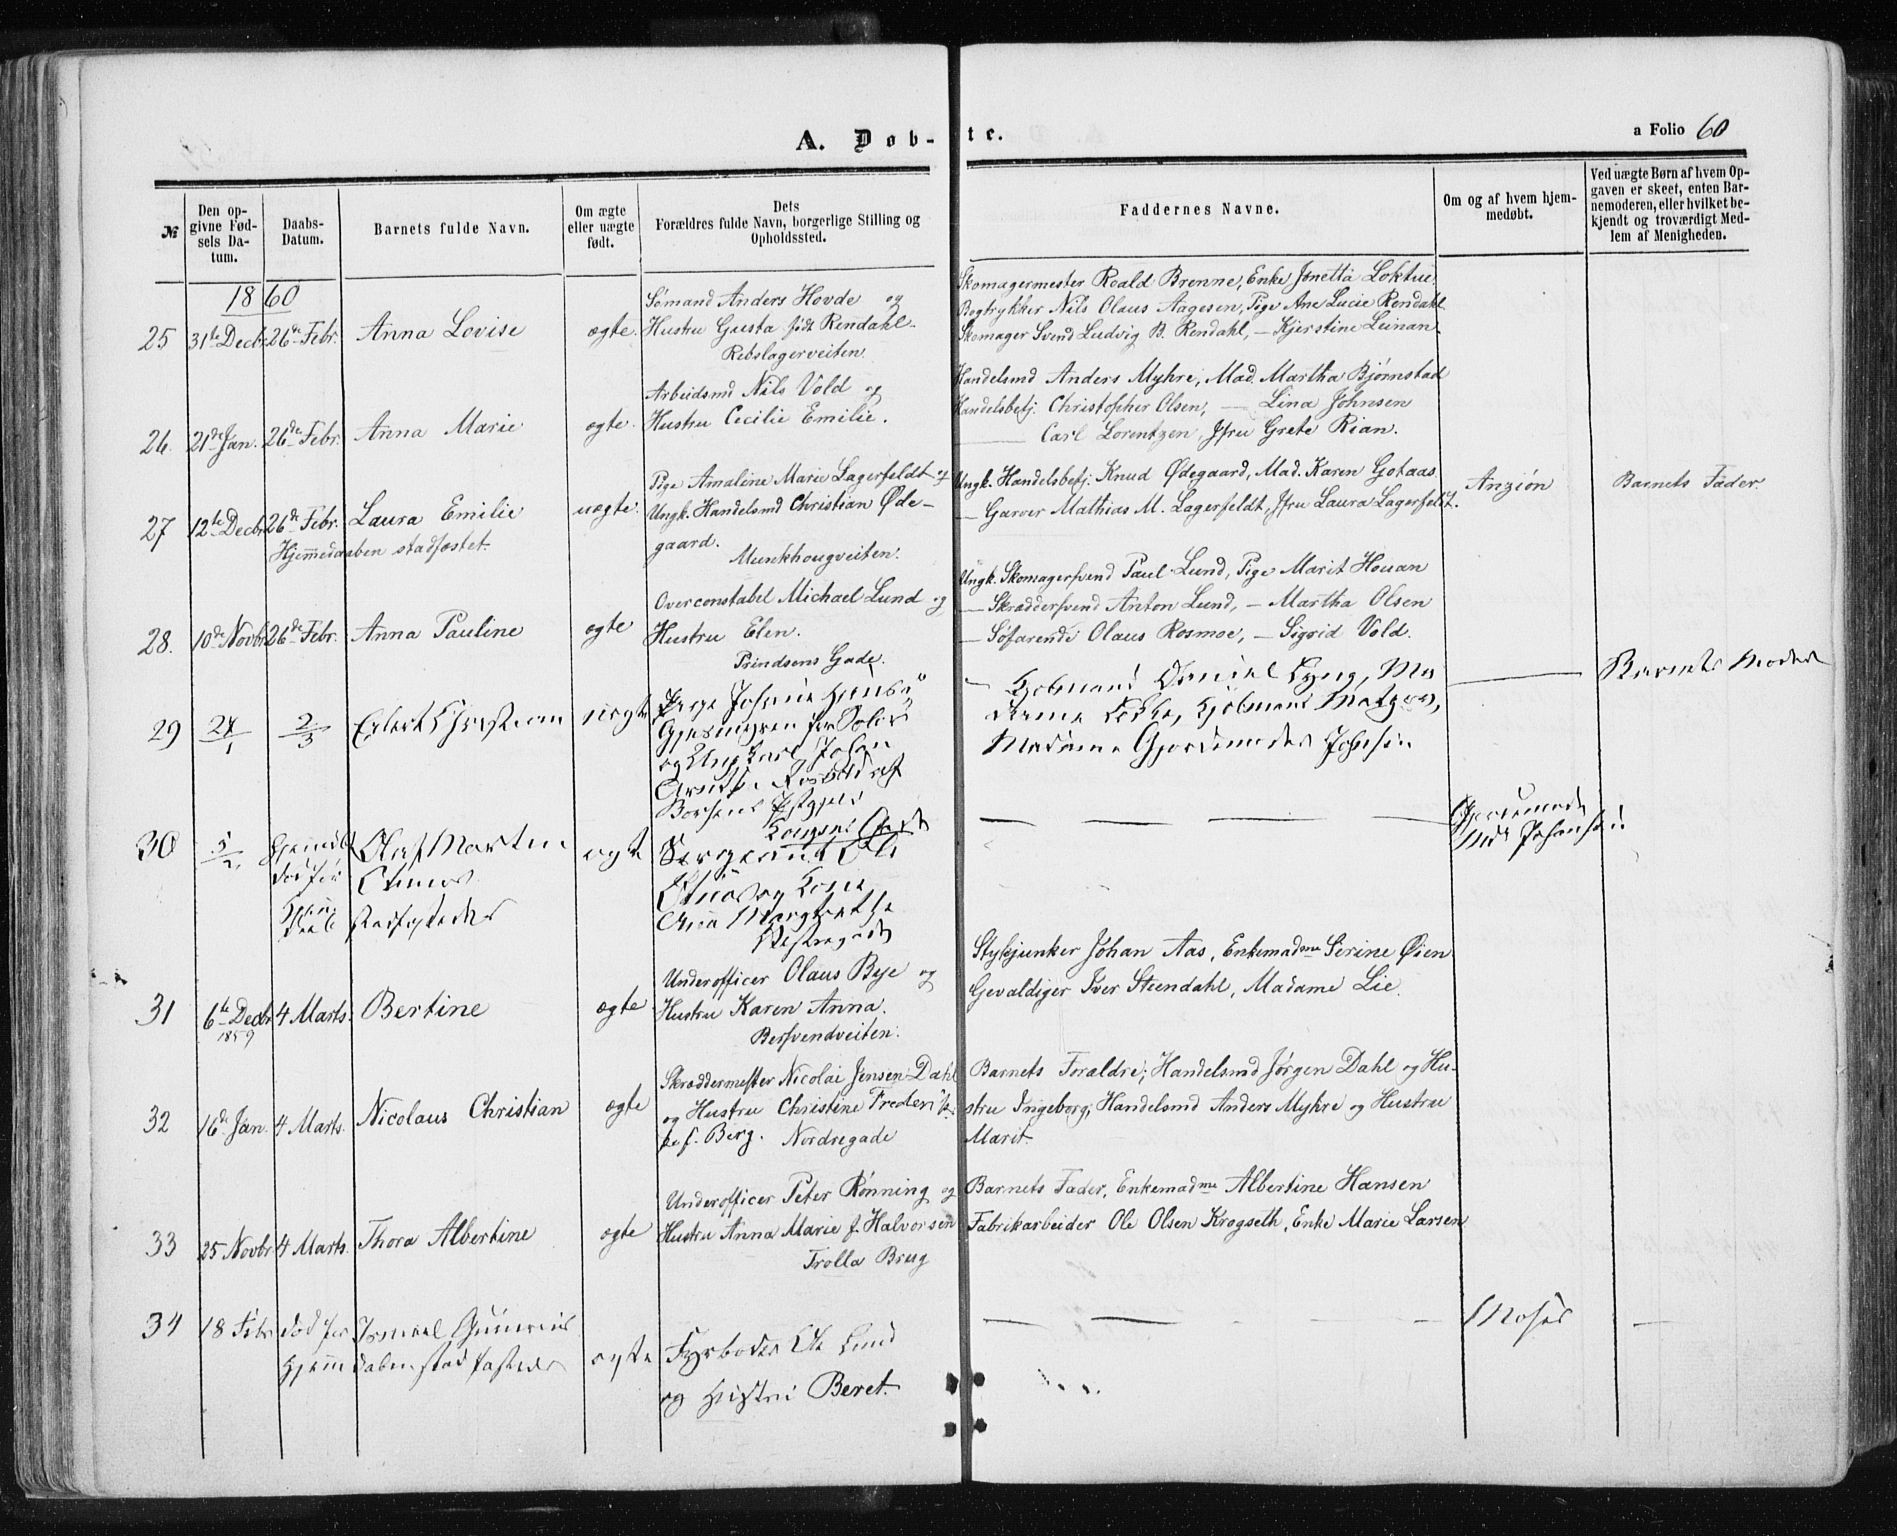 A. Døb-te.
a Folio 60
№
Den opgivne Fødsels Datum.
Daabs-Datum.
Barnets fulde Navn.
Om ægte eller uægte født.
Dets Forældres fulde Navn, borgerlige Stilling og Opholdssted.
Faddernes Navne.
Om og af hvem hjemmedøbt.
Ved uægte Børn af hvem Opgaven er skeet, enten Barnemoderen, eller hvilket bekjendt og troværdigt Medlem af Menigheden.
1860
25 31te Decbr. 26de Febr. Anna Lovise ægte.
Sømand Anders Hovde og
Hustru Gusta født Rendahl.
Rebslagerveiten
Skomagermester Roald Brenne, Enke Jonetta Loktu.
Bogtrykker Nils Olaus Aagesen, Pige Ane Lucie Rendahl
Skomager Svend Ludvig B. Rendahl, — Kjerstine Leinan.
26. 21de Jan. 26de Febr. Anna Marie ægte.
Arbeidsmd Nils Vold og
Hustru Cecilie Emilie.
Handelsmd Anders Myhre, Mad. Martha Bjørnstad
Handelsbetj. Christopher Olsen, — Lina Johnsen
— Carl Lorentzen, Jfru Grete Rian.
27 12te Decbr. 26de Febr. Laura Emilie uægte.
Hjemmedaaben stadfæstet.
Pige Amaline Marie Lagerfeldt og
Ungk. Handelsmd Christian Øde-
gaard.
Munkhougveiten.
Ungk. Handelsbetj. Knud Ødegaard, Mad. Karen Gotaas
— Garver Mathias M. Lagerfeldt, Jfru Laura Lagerfeldt.
Anziøn
Barnets Fader
28. 10de Novbr. 26de Febr. Anna Pauline ægte
Overconstabel Michael Lund og
Hustru Elen.
Prindsens Gade.
Ungk. Skomagersvend Paul Lund, Pige Marit Houan
— Skræddersvend Anton Lund, — Martha Olsen
— Søfarende Olaus Rosmoe, — Sigrid Vold.
29 24/1 2/3 Christian uægte
Pige
og Ungk. Karl Johan
Kjøbmand Daniel Lyng, Ma
dame Kjøbmand
Madame Gjordemoder Johnsen
Barnets Moder
30 5/2 Olaf Martin ægte
død før
Hjemme
daab stadfæstedes
Kongens Gade
Sergeant Ole
og Kone
Vestregade
Gjordemoder
Md. Johansen
31 6te Decbr 1859 4 Marts. Bertine ægte
Underofficer Olaus Bye og
Hustru Karen Anna.
Bersvendveiten.
Stykjunker Johan Aas, Enkemadme Serine Øien
Gevaldiger Iver Steendahl, Madame Lie.
32 16de Jan. 4 Marts. Nicolaus Christian ægte
Skræddermester Nicolai Jensen Dahl
og Hustru Christine Frederik-
ke f. Berg. Nordregade
Barnets Forældre; Handelsmd Jørgen Dahl og Hu-
stru Ingeborg; Handelsmd Anders Myhre og Hustru
Marit.
33 25 Novbr 4 Marts. Thora Albertine ægte
Underofficer Peter Rønning og
Hustru Anna Marie f. Halvorsen
Trolla Brug
Barnets Fader, Enkemadme Albertine Hansen
Fabrikarbeider Ole Olsen Krogseth, Enke Marie Larsen
34 18 Febr død før
Hjemmedaaben stadfæstedes ægte
Fyrbøder Ole Lund
og Hustru Beret.
Moses